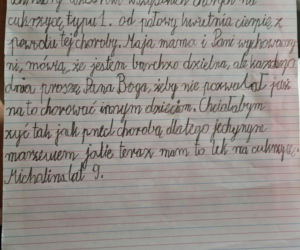 cukrzycę typu 1. od połowy kwietnia cierpię z
powodu tej choroby. Moja mama i Pani wychowawczy
ni, mówią, że jestem bardzo dzielna, ale każdego
dnia proszę Pana Boga, żeby nie pozwalał już
na to chorować innym dzieciom. Chciałabym
żyć tak jak przed chorobą dlatego jedynym
marzeniem jakie teraz mam to lek na cukrzycę.
Michalina lat 9.